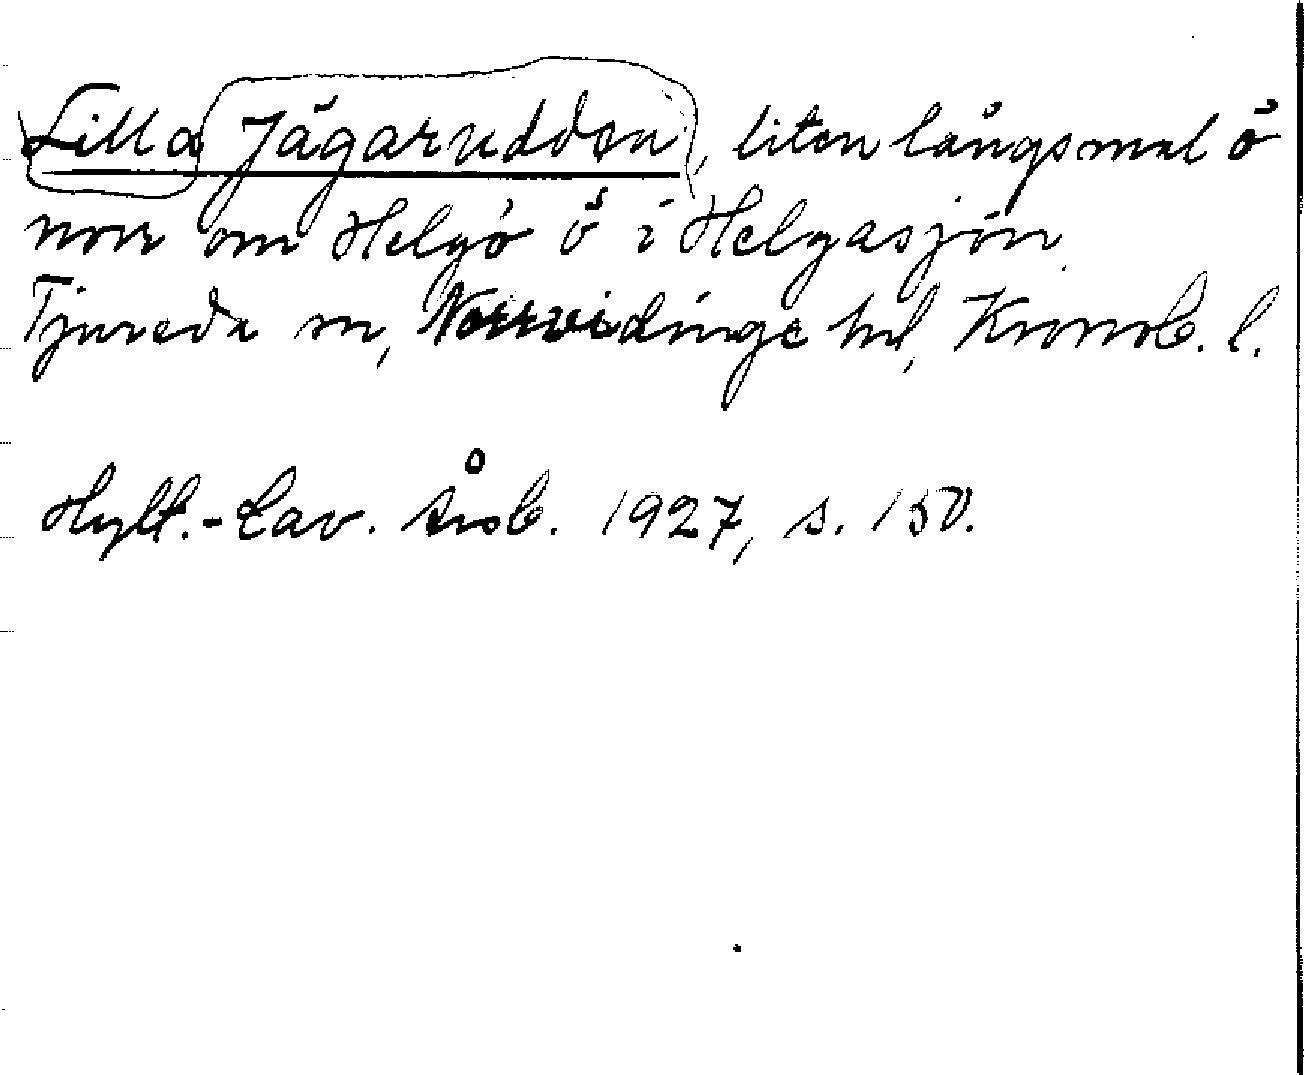 Lilla Jägarudden, liten långsmal ö
norr om Helgö ö i Helgasjön
Tjureda sn, Norrvidinge hd, Kronob. l.
Hylt.-Cav. Årsb. 1927, s. 150.